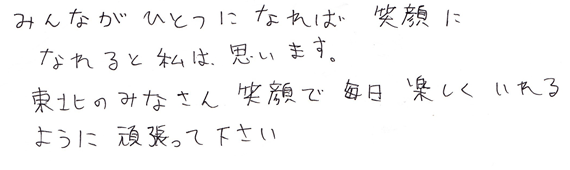 みんながひとつになれば 笑顔に
なれると私は、思います。
東北のみなさん 笑顔で 毎日 楽しく いれる
ように 頑張って下さい